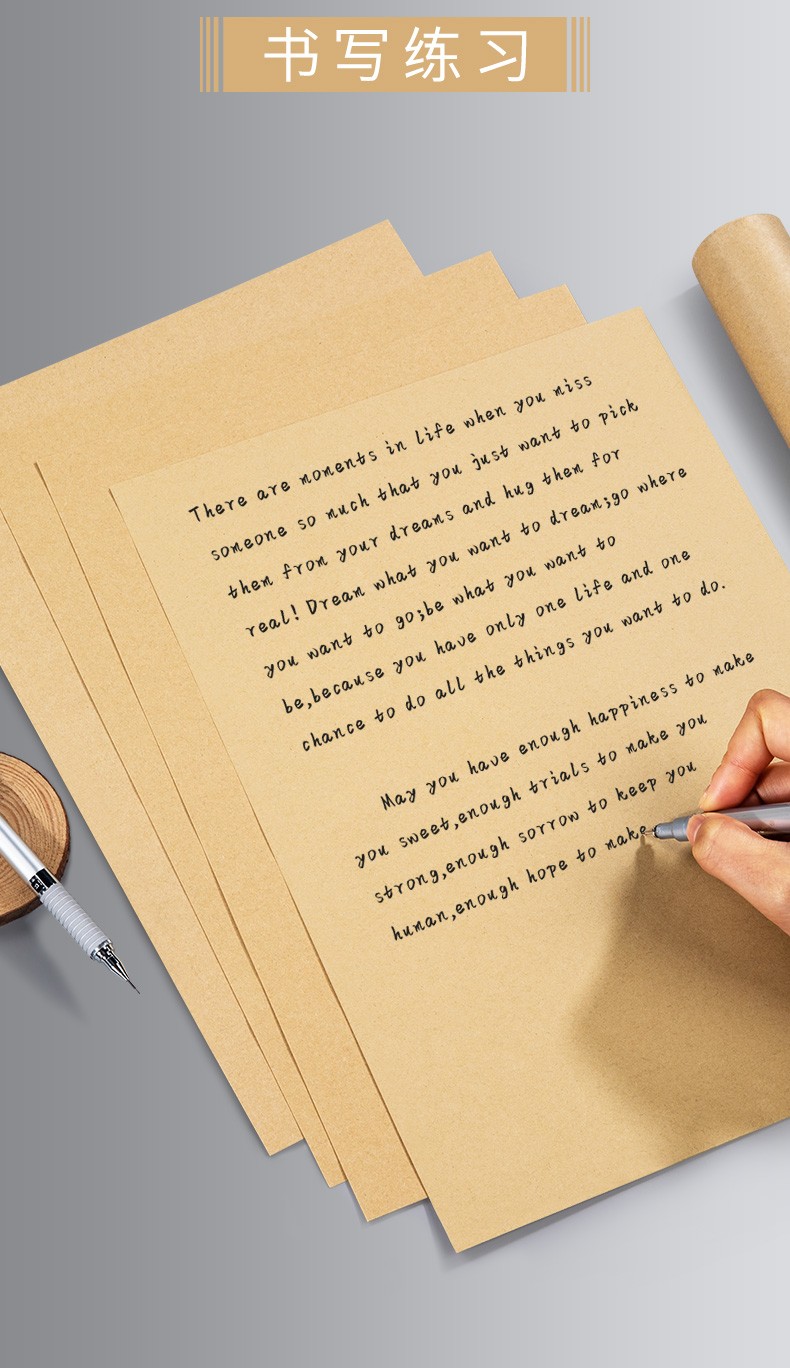 书写练习
There are moments in life when you miss
someone so much that you just want to pick
them from your dreams and hug them for
real! Dream what you want to dream;go where
you want to go;be what you want to
be,because you have only one life and one
chance to do all the things you want to do.
May you have enough happiness to make
you sweet,enough trials to make you
strong,enough sorrow to keep you
human,enough hope to make